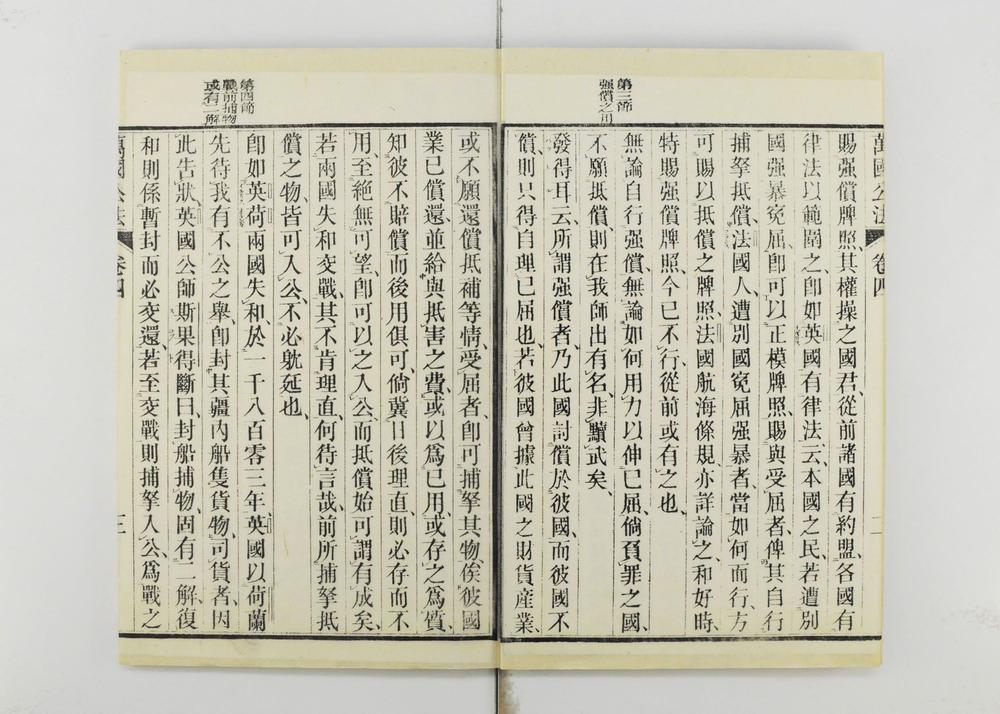 第三節
强償之用
萬國公法
卷四
二
賜强償牌照、其權操之國君、從前諸國有約盟、各國有
律法以範圍之、卽如英國有律法、云本國之民、若遭別
國强暴寃屈、卽可以正模牌照、賜與受屈者、俾其自行
捕拏抵償、法國人、遭別國寃屈强暴者、當如何而行、方
可賜以抵償之牌照、法國航海條規、亦詳論之、和好時、
特賜强償牌照、今已不行、從前或有之也、
無論自行强償、無論如何用力以伸已屈、倘負罪之國、
不願抵償、則在我師出有名、非黷武矣、
發得耳云、所謂强償者、乃此國討償於彼國、而彼國不
償、則只得自理已屈也、若彼國曾據此國之財貨產業、
第四節
戰前捕物
或有二解
或不願還償抵補等情、受屈者、卽可捕拏其物、俟彼國
業已償還、並給與抵害之費、或以爲已用、或存之爲質、
知彼不賠償、而後用俱可、倘冀日後理直、則必存而不
用、至絕無可望、卽可以之入公、而抵償始可謂有成矣、
若兩國失和交戰、其不肯理直、何待言哉、前所捕拏抵
償之物、皆可入公、不必躭延也、
卽如英荷兩國失和、於一千八百零三年、英國以荷蘭
先待我有不公之舉、卽封其疆內船隻貨物、可貨者、因
此告狀、英國公師斯果得斷曰、封船捕物、固有二解、復
和則係暫封而必交還、若至交戰則捕拏人公、爲戰之
萬國公法
卷四
三